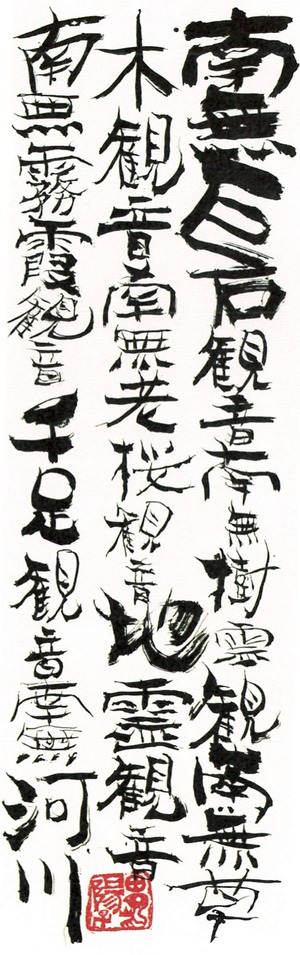 南無巨石観音南無樹霊観南無草
木観音南無老桜観音地霊観音
南無霧霞観音千足観音南無河川